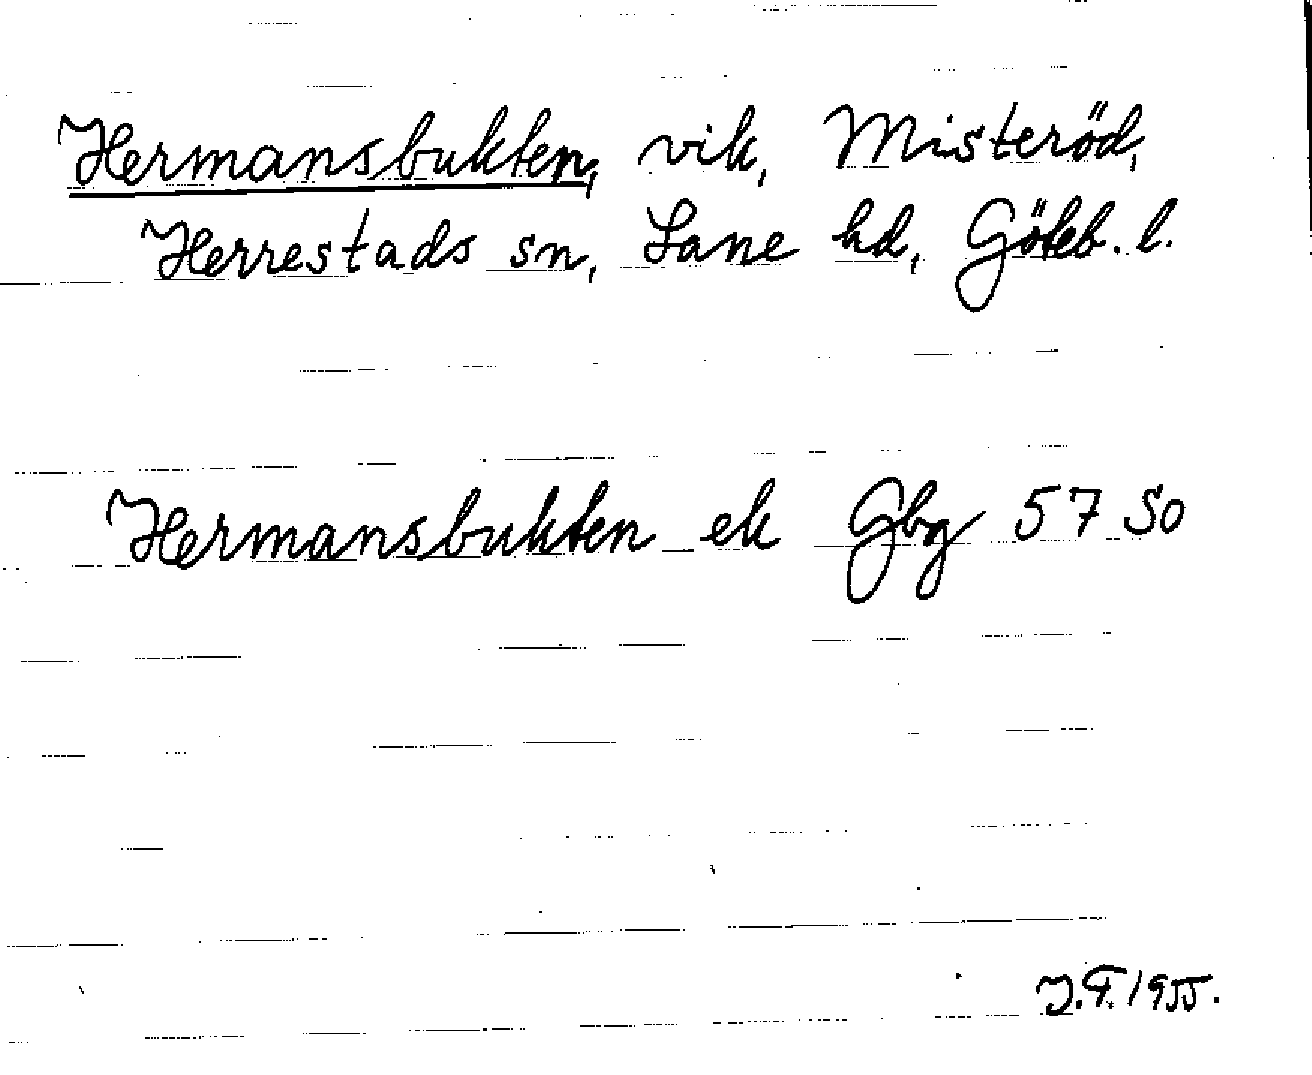 Hermansbukten, vik, Misteröd,
Herrestads sn, Lane hd, Göteb. l.
Hermansbukten ek Gbg 57 So
J.F. 1955.